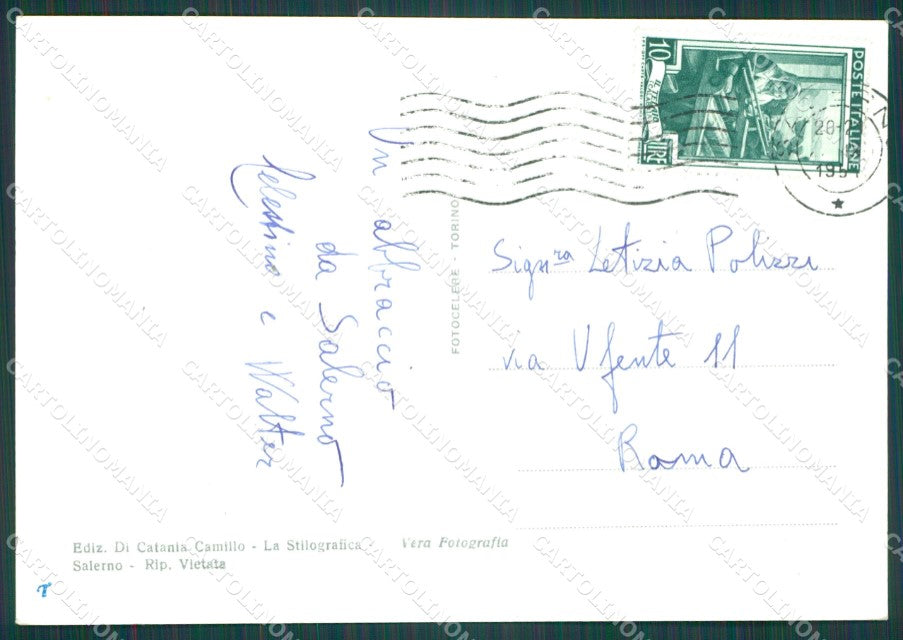 Un abbraccio
da Salerno
Celestino e Walter
FOTOCELERE - TORINO
10
LIRE
POSTE ITALIANE
1951
Sign.ra Letizia Polizzi
via Ufente 11
Roma
Ediz. Di Catania Camillo - La Stilografica
Salerno - Rip. Vietata
Vera Fotografia
CARTOLINOMANIA